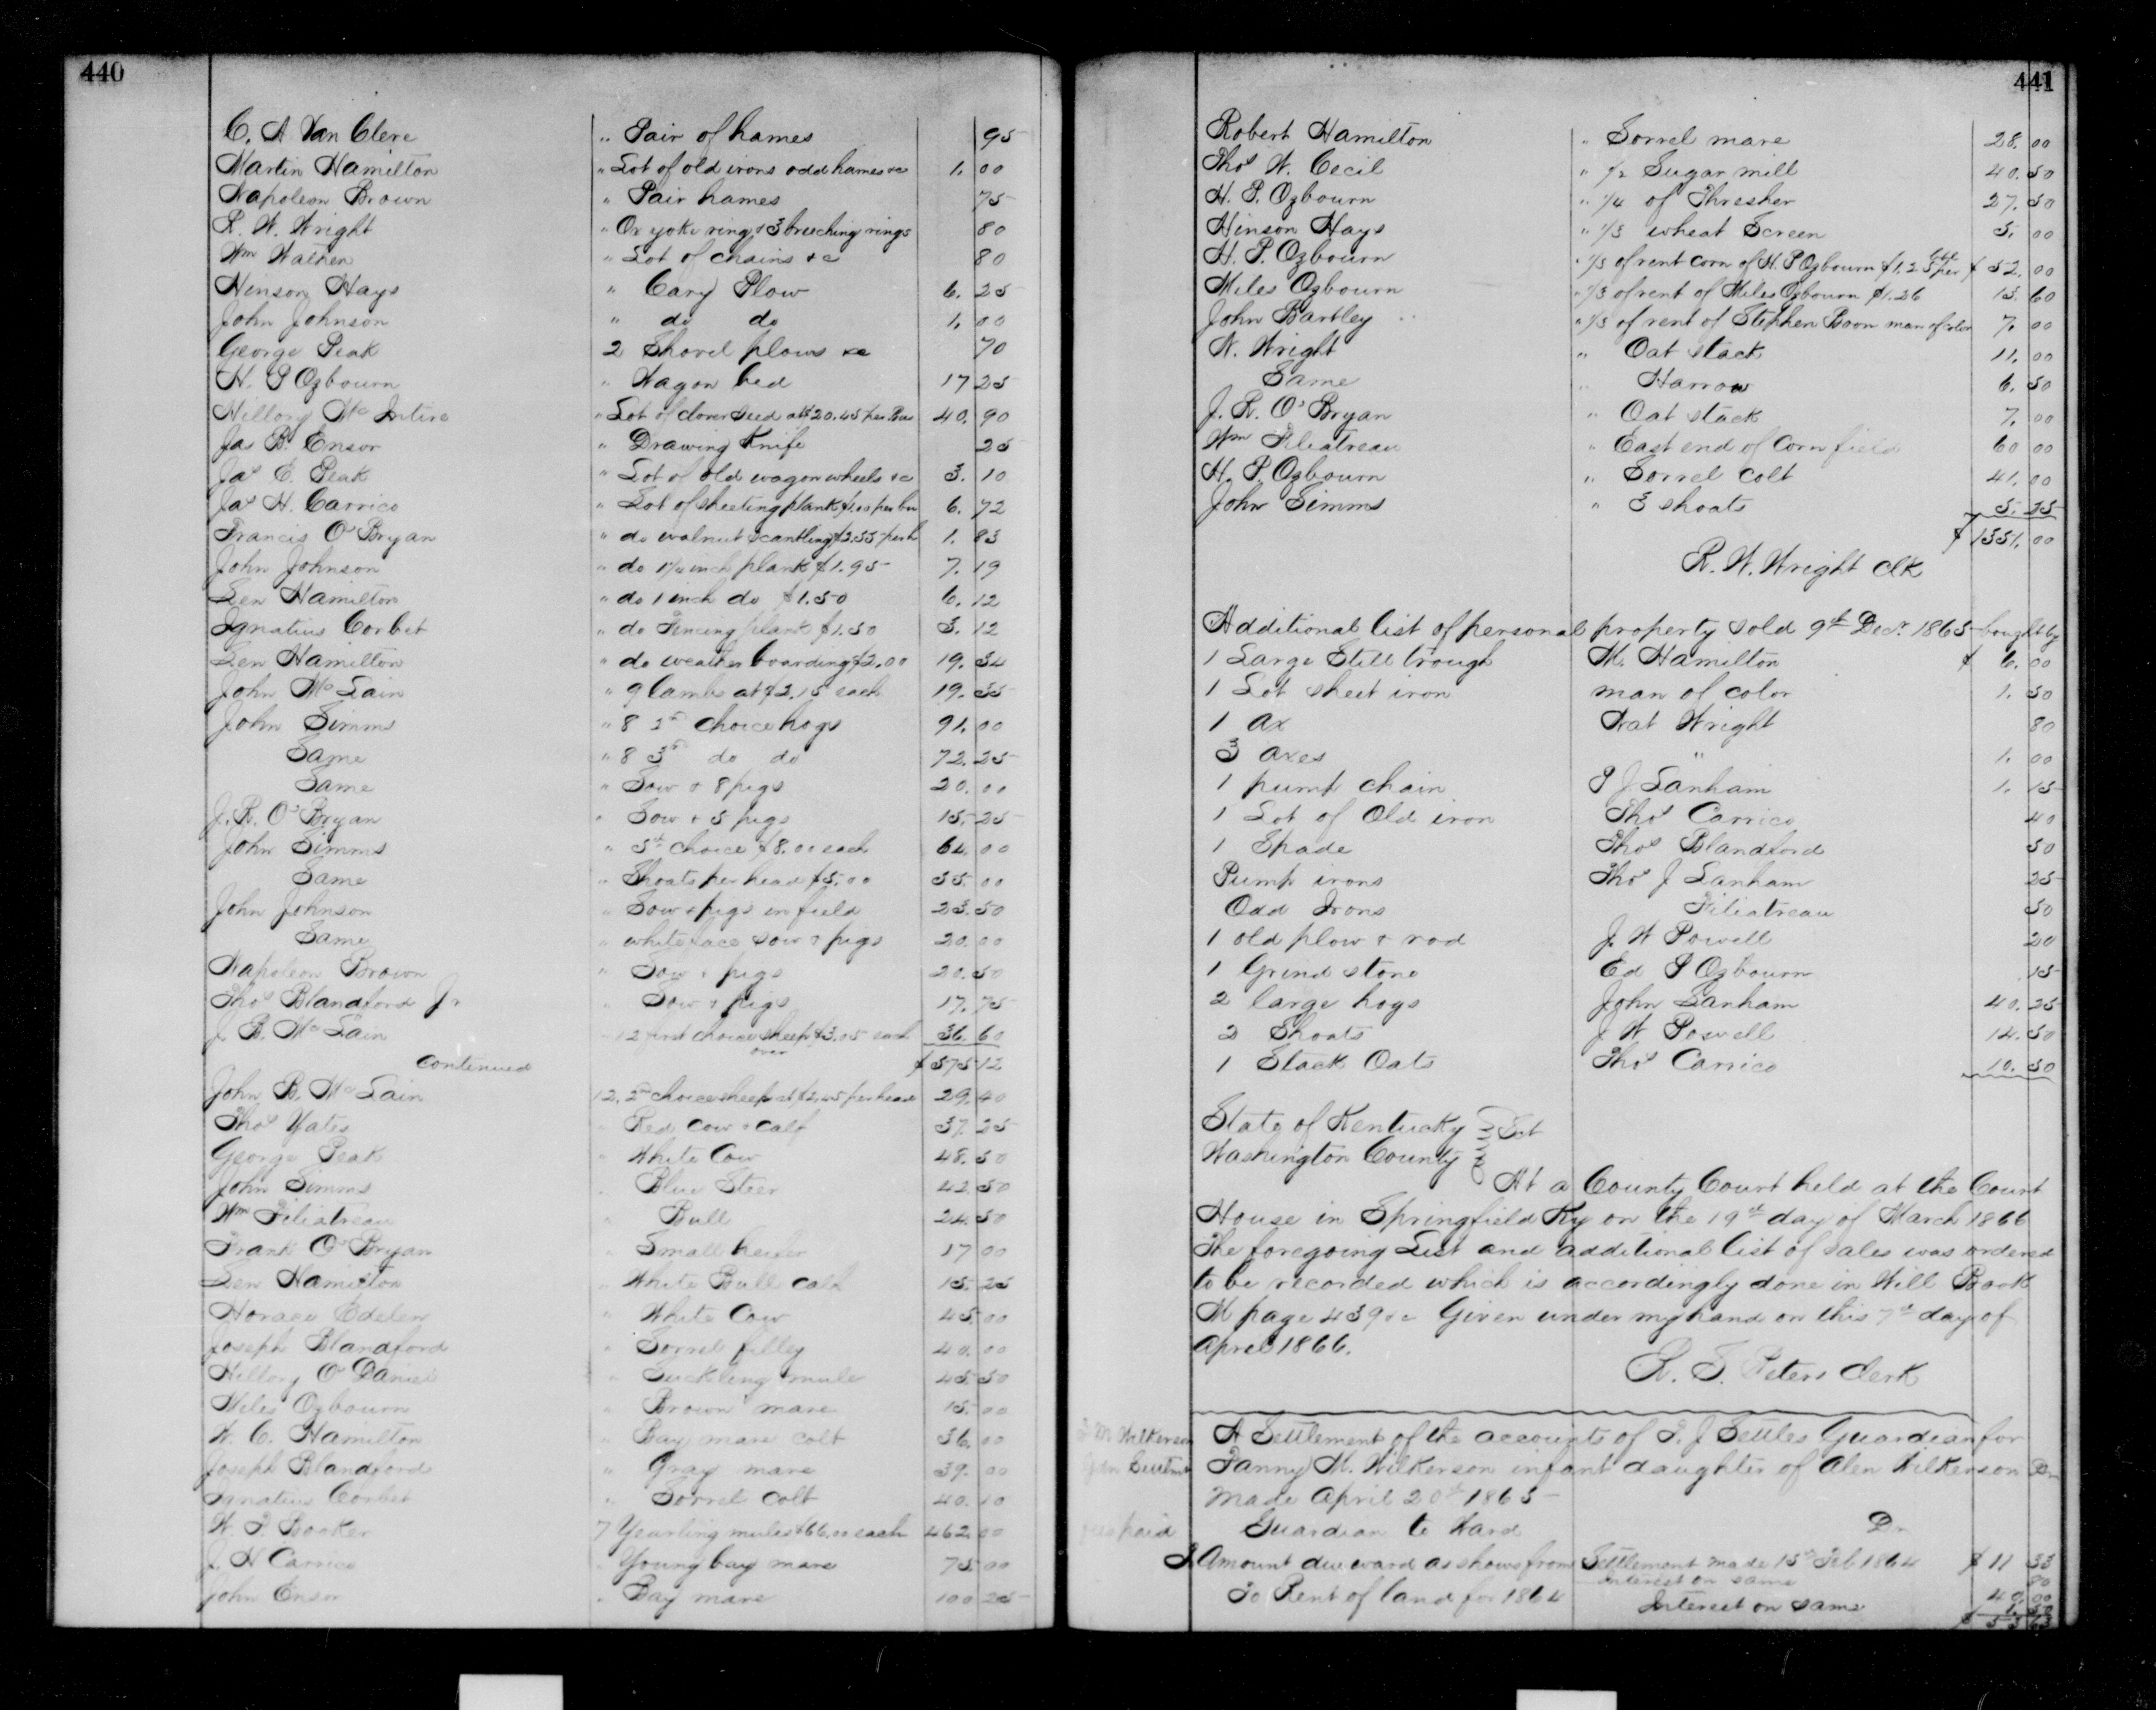 440
C. A Van Cleve " Pair of hames 95
Martin Hamilton " Lot of old irons odd hames &c 1. 00
Napoleon Brown " Pair hames 75
R. W. Wright " Ox yoke ring & 3 breeching rings 80
Wm Wathen " Lot of chains &c 80
Hinson Hays " Cary Plow 6. 25
John Johnson " do do 1. 00
George Peak 2 Shovel plows &c 70
H. P Ogbourn " Wagon bed 17 25
Hillory Mc Intire " Lot of clover seed at $20.45 per Bus 40. 90
Jas B. Ensor " Drawing Knife 25
Jas E. Peak " Lot of old wagon wheels &c 3. 10
Jas H. Carrico " Lot of sheeting plank $1.10 per hu 6. 72
Francis O'Bryan " do walnut scantling $2.35 per h 1. 83
John Johnson " do 1¼ inch plank $1.95 7. 19
Len Hamilton " do 1 inch do $1.50 6. 12
Ignatius Corbet " do Fencing plank $1.30 3. 12
Len Hamilton " do weather boarding $2.00 19. 34
John Mc Lain " 9 lambs at $2.15 each 19. 35
John Simms " 8 2nd choice hogs 91. 00
Same " 8 3rd do do 72. 25
Same " Sow & 8 pigs 20. 00
J. R. O'Bryan " Sow & 5 pigs 15. 25
John Simms " 5th choice $8.00 each 64. 00
Same " Shoats per head $5.00 35. 00
John Johnson " Sow & pigs in field 23. 50
Same " white face sow & pigs 20. 00
Napoleon Brown " Sow & pigs 20. 50
Thos Blandford Jr " Sow & pigs 17. 75
J. B. Mc Lain 12 first choice sheep $3.05 each 36. 60
continued over $575 12
John B. Mc Lain 12, 2nd choice sheep at $2.45 per head 29. 40
Thos Yates " Red Cow & calf 37. 25
George Peak " White Cow 48. 50
John Simms " Blue Steer 42. 50
Wm Filiatreau " Bull 24. 50
Frank O'Bryan " Small heifer 17 00
Len Hamilton " White Bull calf 15. 25
Horace Edelen " White Cow 45. 00
Joseph Blandford " Sorrel filley 40. 00
Hillory O'Daniel " Suckling mule 45. 50
Miles Ogbourn " Brown mare 15. 00
W. C. Hamilton " Bay mare colt 36. 00
Joseph Blandford " Gray mare 39. 00
Ignatius Corbet " Sorrel colt 40. 10
W. F. Booker 7 Yearling mules $66.00 each 462. 00
J. H Carrico " Young bay mare 75. 00
John Ensor " Bay mare 100 25
441
Robert Hamilton " Sorrel mare 28. 00
Thos W. Cecil " ½ Sugar mill 40. 50
H. P. Ogbourn " ¼ of Thresher 27. 50
Hinson Hays " ⅓ wheat Screen 5. 00
H. P. Ogbourn " ⅓ of rent corn of H. P Ogbourn $1.25 per bbl $ 52. 00
Miles Ogbourn " ⅓ of rent of Miles Ogbourn $1.26 13. 60
John Bartley " ⅓ of rent of Stephen Boon man of color 7. 00
N. Wright " Oat stack 11. 00
Same " Harrow 6. 50
J. R. O'Bryan " Oat stack 7. 00
Wm Filiatreau " East end of Corn field 60 00
H. P. Ogbourn " Sorrel colt 41. 00
John Simms " 3 shoats 5. 25
$1331. 00
R. W. Wright Clk
Additional list of personal property sold 9th Decr. 1865 bought by
1 Large Still trough M. Hamilton $ 6. 00
1 Lot sheet iron man of color 1. 50
1 ax Nat Wright 80
3 axes " 1. 00
1 pump chain P J Lanham 1. 15
1 Lot of Old iron Thos Carrico 40
1 Spade Thos Blandford 50
Pump irons Thos J Lanham 25
Odd Irons Filiatreau 50
1 old plow & rod J. W Powell 20
1 Grind stone Ed P Ogbourn 15
2 large hogs John Lanham 40. 25
2 Shoats J W Powell 14. 50
1 Stack Oats Thos Carrico 10. 50
State of Kentucky
Washington County Sct
At a County Court held at the Court
House in Springfield Ky on the 19th day of March 1866
The foregoing List and additional list of sales was ordered
to be recorded which is accordingly done in Will Book
M page 439 &c Given under my hand on this 7th day of
April 1866.
R. S. Peters Clerk
A Settlement of the accounts of T. J Settles Guardian for
Fanny M. Wilkerson infant daughter of Alen Wilkerson Dr
made April 20th 1865
F M Wilkerson
Guardian to Ward Dr
paid
Amount due ward as shows from Settlement made 15th Feb 1864 $ 11 33
Interest on same 80
To Rent of land for 1864 40. 00
Interest on same 1. 50
$ 53 63